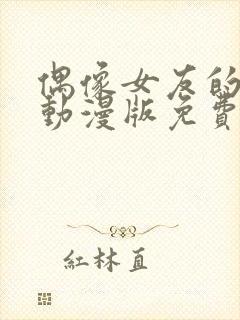 偶像女友的
動漫版免費
紅林直